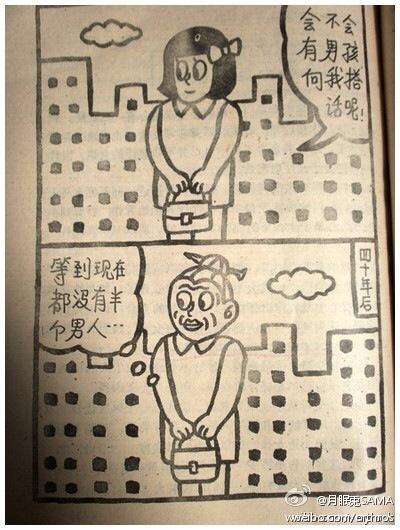 会不会
有男孩
向我搭
话呢!
四十年后
等到现在
都沒有半
个男人…
@月眠兔SAMA